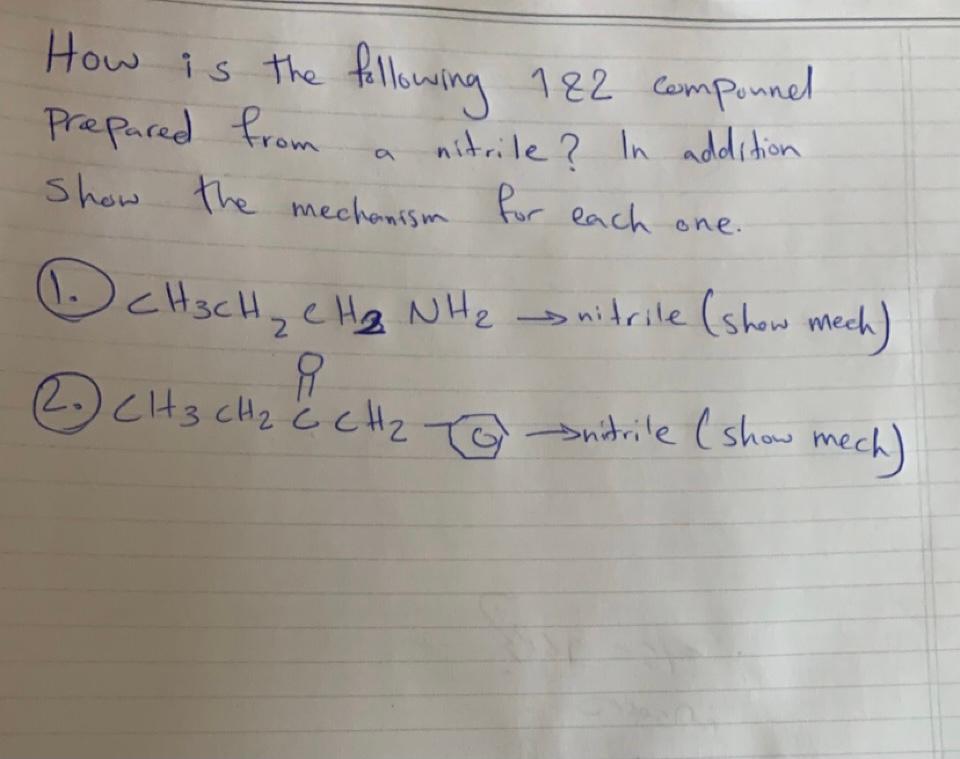 How is the following 1&2 compounnel
Prepared from a nitrile? In addition
show the mechanism for each one.
1. CH3CH2CH2 NH2 → nitrile (show mech)
O
2. CH3 CH2 C CH2 → nitrile (show mech)